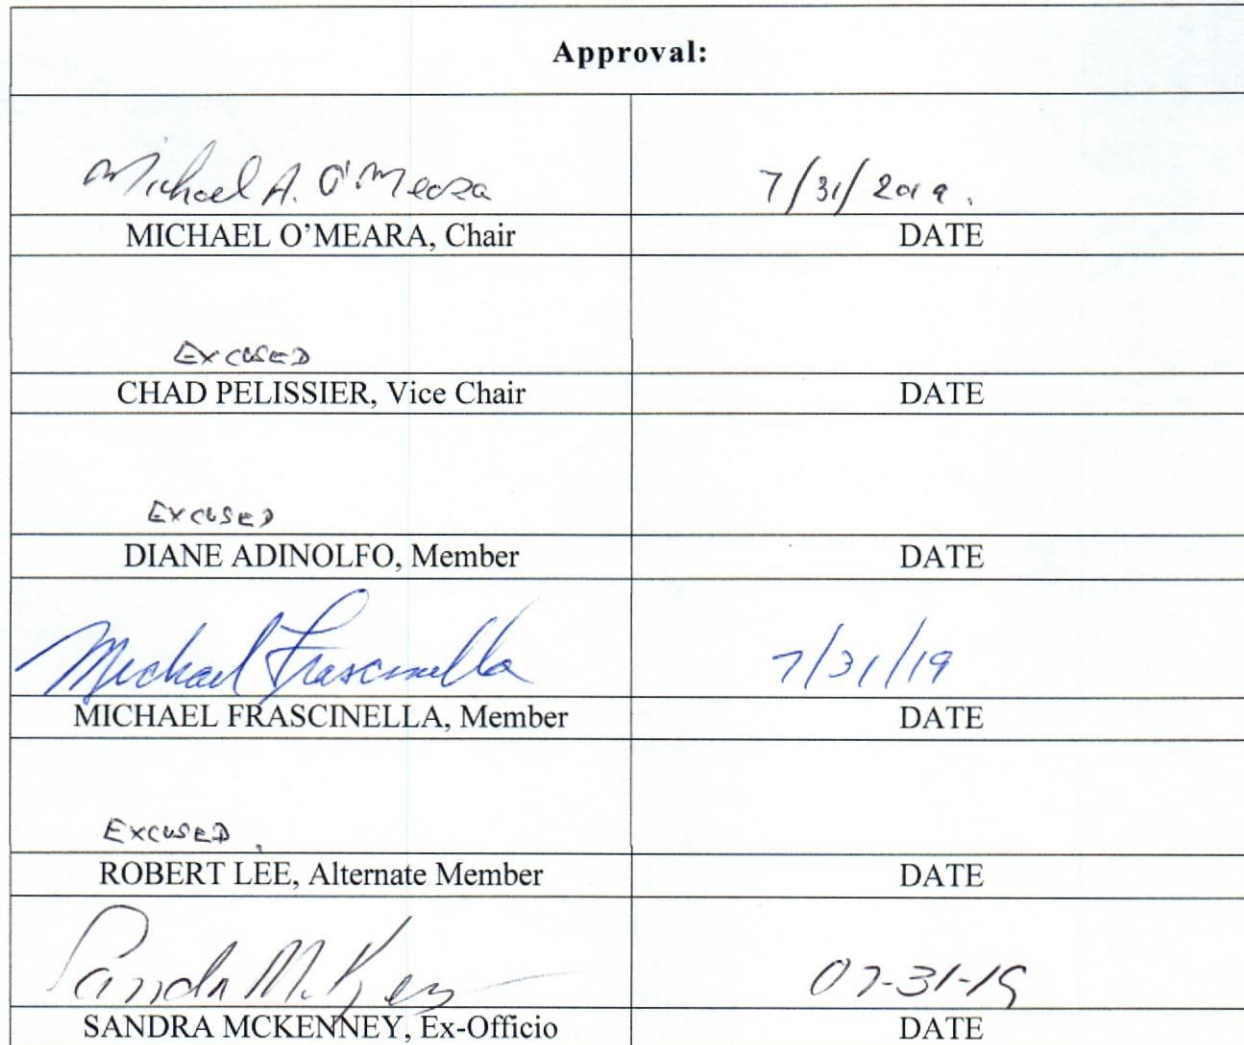 Approval:
Michael A. O'Meara 7/31/2019.
MICHAEL O'MEARA, Chair DATE
Excused
CHAD PELISSIER, Vice Chair DATE
Excused
DIANE ADINOLFO, Member DATE
Michael Frascinella 7/31/19
MICHAEL FRASCINELLA, Member DATE
Excused
ROBERT LEE, Alternate Member DATE
Sandra McKenney 07-31-19
SANDRA MCKENNEY, Ex-Officio DATE